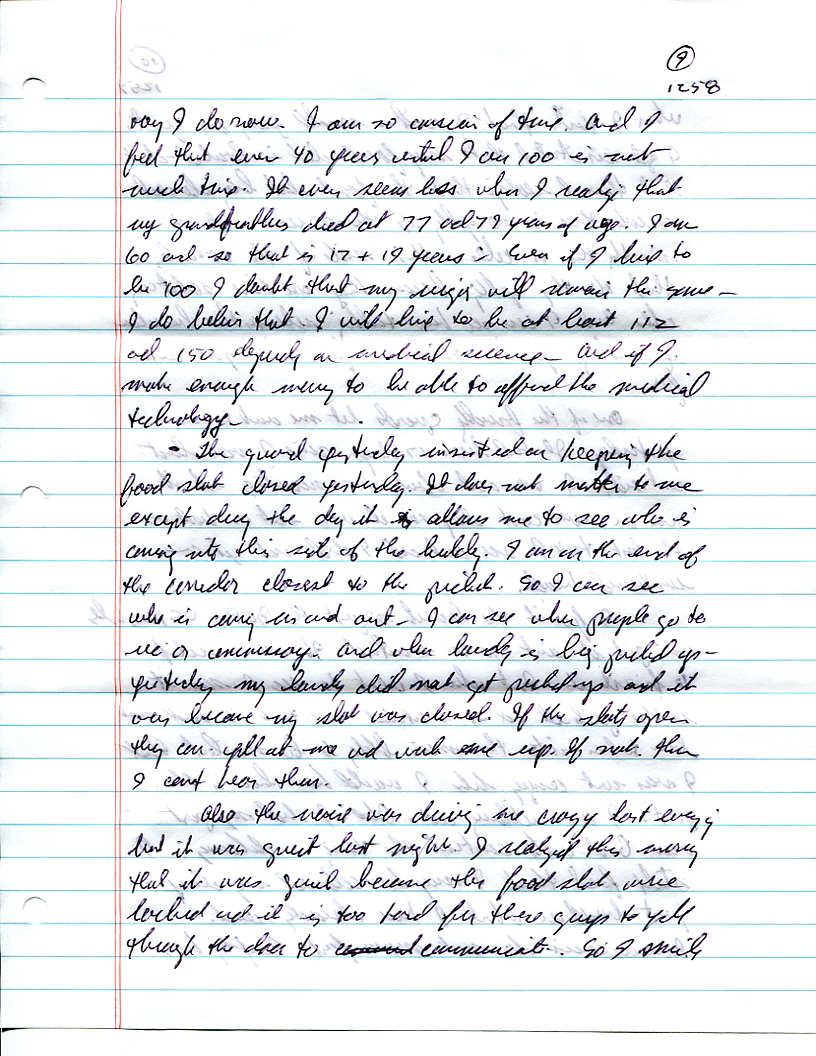 9
1258
way I do now. I am so conscious of time. And I
feel that even 40 years until I am 100 is not
much time. It even seems less when I realize that
my grandfathers died at 77 and 79 years of age. I am
60 and so that is 17 + 19 years. Even if I live to
be 100 I doubt that my will remain the same -
I do believe that I will live to be at least 112
and 150 depends on medical science - and if I
make enough money to be able to afford the medical
technology -
- The guard yesterday insisted on keeping the
food slot closed yesterday. It does not matter to me
except during the day it allows me to see who is
coming into this side of the building. I am on the end of
the corridor closest to the . So I can see
who is coming in and out - I can see when people go to
rec or commissary. And when laundry is being picked up -
yesterday my laundry did not get picked up and it
was because my slot was closed. If the slots open
they can yell at me and wake me up. If not then
I can't hear them.
Also the noise was driving me crazy last evening
but it was quiet last night. I realized this morning
that it was quiet because the food slots were
locked and it is too hard for these guys to yell
through the door to communicate. So I smile